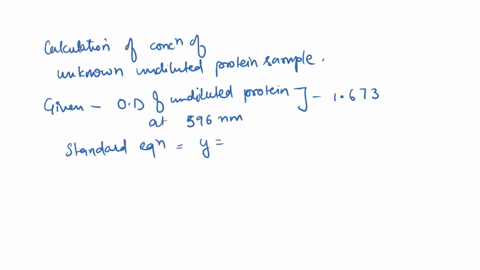 Calculation of concⁿ of
unknown undiluted protein sample.
Given - O.D of undiluted protein ] - 1.673
at 596 nm
Standard eqⁿ = y =